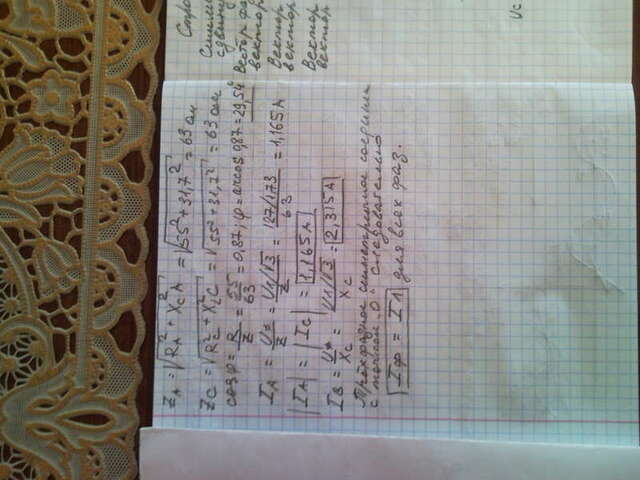 Z_A = √(R_A² + X_CA²) = √(55² + 31,7²) = 63 ом
Z_C = √(R_C² + X_LC²) = √(55² + 31,7²) = 63 ом
cosφ = R/Z = 55/63 = 0,87; φ = arccos 0,87 = 29,54°
I_A = Uф/Z = U1/√3/Z = 127/1,73/63 = 1,165A
|I_A| = |I_C| = 1,165A
I_B = Uф/X_C = U1/√3/X_C = 2,315A
Трёхфазное симметричное соединен
с точкой "О" следовательно
Iф = I1 для всех фаз.
Симме
сдвину
Вектор фа
вектор
Вектор
вектор
Вектор
вектор
Uc